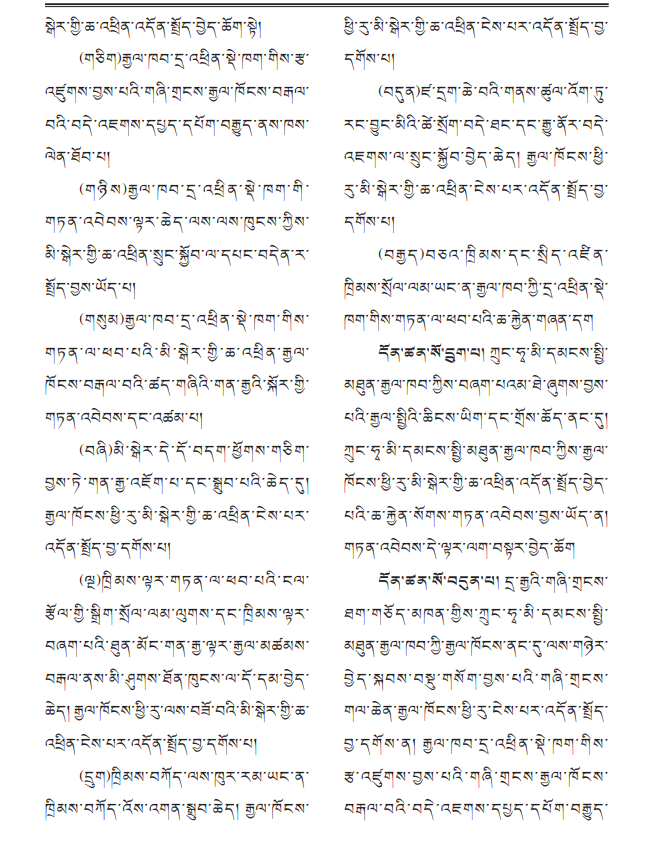 སྒེར་གྱི་ཆ་འཕྲིན་འདོན་སྤྲོད་བྱེད་ཆོག་སྟེ།
(གཅིག)རྒྱལ་ཁབ་དྲ་འཕྲིན་སྡེ་ཁག་གིས་རྩ་
འཛུགས་བྱས་པའི་གཞི་གྲངས་རྒྱལ་ཁོངས་བརྒལ་
བའི་བདེ་འཇགས་དཔྱད་དཔོག་བརྒྱུད་ནས་ཁས་
ལེན་ཐོབ་པ།
(གཉིས)རྒྱལ་ཁབ་དྲ་འཕྲིན་སྡེ་ཁག་གི་
གཏན་འབེབས་ལྟར་ཆེད་ལས་ལས་ཁུངས་ཀྱིས་
མི་སྒེར་གྱི་ཆ་འཕྲིན་སྲུང་སྐྱོབ་ལ་དཔང་བདེན་ར་
སྤྲོད་བྱས་ཡོད་པ།
(གསུམ)རྒྱལ་ཁབ་དྲ་འཕྲིན་སྡེ་ཁག་གིས་
གཏན་ལ་ཕབ་པའི་མི་སྒེར་གྱི་ཆ་འཕྲིན་རྒྱལ་
ཁོངས་བརྒལ་བའི་ཚད་གཞིའི་གན་རྒྱའི་སྐོར་གྱི་
གཏན་འབེབས་དང་འཚམ་པ།
(བཞི)མི་སྒེར་དེ་དོ་བདག་ཕྱོགས་གཅིག་
བྱས་ཏེ་གན་རྒྱ་འཇོག་པ་དང་སྒྲུབ་པའི་ཆེད་དུ།
རྒྱལ་ཁོངས་ཕྱི་རུ་མི་སྒེར་གྱི་ཆ་འཕྲིན་ངེས་པར་
འདོན་སྤྲོད་བྱ་དགོས་པ།
(ལྔ)ཁྲིམས་ལྟར་གཏན་ལ་ཕབ་པའི་ངལ་
རྩོལ་གྱི་སྒྲིག་སྲོལ་ལམ་ལུགས་དང་ཁྲིམས་ལྟར་
བཞག་པའི་ཐུན་མོང་གན་རྒྱ་ལྟར་རྒྱལ་མཚམས་
བརྒལ་ནས་མི་ཤུགས་ཐོན་ཁུངས་ལ་དོ་དམ་བྱེད་
ཆེད། རྒྱལ་ཁོངས་ཕྱི་རུ་ལས་བཟོ་བའི་མི་སྒེར་གྱི་ཆ་
འཕྲིན་ངེས་པར་འདོན་སྤྲོད་བྱ་དགོས་པ།
(དྲུག)ཁྲིམས་བཀོད་ལས་ཁུར་རམ་ཡང་ན་
ཁྲིམས་བཀོད་འོས་འགན་སྒྲུབ་ཆེད། རྒྱལ་ཁོངས་
ཕྱི་རུ་མི་སྒེར་གྱི་ཆ་འཕྲིན་ངེས་པར་འདོན་སྤྲོད་བྱ་
དགོས་པ།
(བདུན)ཛ་དྲག་ཆེ་བའི་གནས་ཚུལ་འོག་ཏུ་
རང་བྱུང་མིའི་ཚེ་སྲོག་བདེ་ཐང་དང་རྒྱུ་ནོར་བདེ་
འཇགས་ལ་སྲུང་སྐྱོབ་བྱེད་ཆེད། རྒྱལ་ཁོངས་ཕྱི་
རུ་མི་སྒེར་གྱི་ཆ་འཕྲིན་ངེས་པར་འདོན་སྤྲོད་བྱ་
དགོས་པ།
(བརྒྱད)བཅའ་ཁྲིམས་དང་སྲིད་འཛིན་
ཁྲིམས་སྲོལ་ལམ་ཡང་ན་རྒྱལ་ཁབ་ཀྱི་དྲ་འཕྲིན་སྡེ་
ཁག་གིས་གཏན་ལ་ཕབ་པའི་ཆ་རྐྱེན་གཞན་དག
དོན་ཚན་སོ་དྲུག་པ། ཀྲུང་ཧྭ་མི་དམངས་སྤྱི་
མཐུན་རྒྱལ་ཁབ་ཀྱིས་བཞག་པའམ་ཐེ་ཞུགས་བྱས་
པའི་རྒྱལ་སྤྱིའི་ཆིངས་ཡིག་དང་གྲོས་ཆོད་ནང་དུ།
ཀྲུང་ཧྭ་མི་དམངས་སྤྱི་མཐུན་རྒྱལ་ཁབ་ཀྱིས་རྒྱལ་
ཁོངས་ཕྱི་རུ་མི་སྒེར་གྱི་ཆ་འཕྲིན་འདོན་སྤྲོད་བྱེད་
པའི་ཆ་རྐྱེན་སོགས་གཏན་འབེབས་བྱས་ཡོད་ན།
གཏན་འབེབས་དེ་ལྟར་ལག་བསྟར་བྱེད་ཆོག
དོན་ཚན་སོ་བདུན་པ། དྲ་རྒྱའི་གཞི་གྲངས་
ཐག་གཅོད་མཁན་གྱིས་ཀྲུང་ཧྭ་མི་དམངས་སྤྱི་
མཐུན་རྒྱལ་ཁབ་ཀྱི་རྒྱལ་ཁོངས་ནང་དུ་ལས་གཉེར་
བྱེད་སྐབས་བསྡུ་གསོག་བྱས་པའི་གཞི་གྲངས་
གལ་ཆེན་རྒྱལ་ཁོངས་ཕྱི་རུ་ངེས་པར་འདོན་སྤྲོད་
བྱ་དགོས་ན། རྒྱལ་ཁབ་དྲ་འཕྲིན་སྡེ་ཁག་གིས་
རྩ་འཛུགས་བྱས་པའི་གཞི་གྲངས་རྒྱལ་ཁོངས་
བརྒལ་བའི་བདེ་འཇགས་དཔྱད་དཔོག་བརྒྱུད་